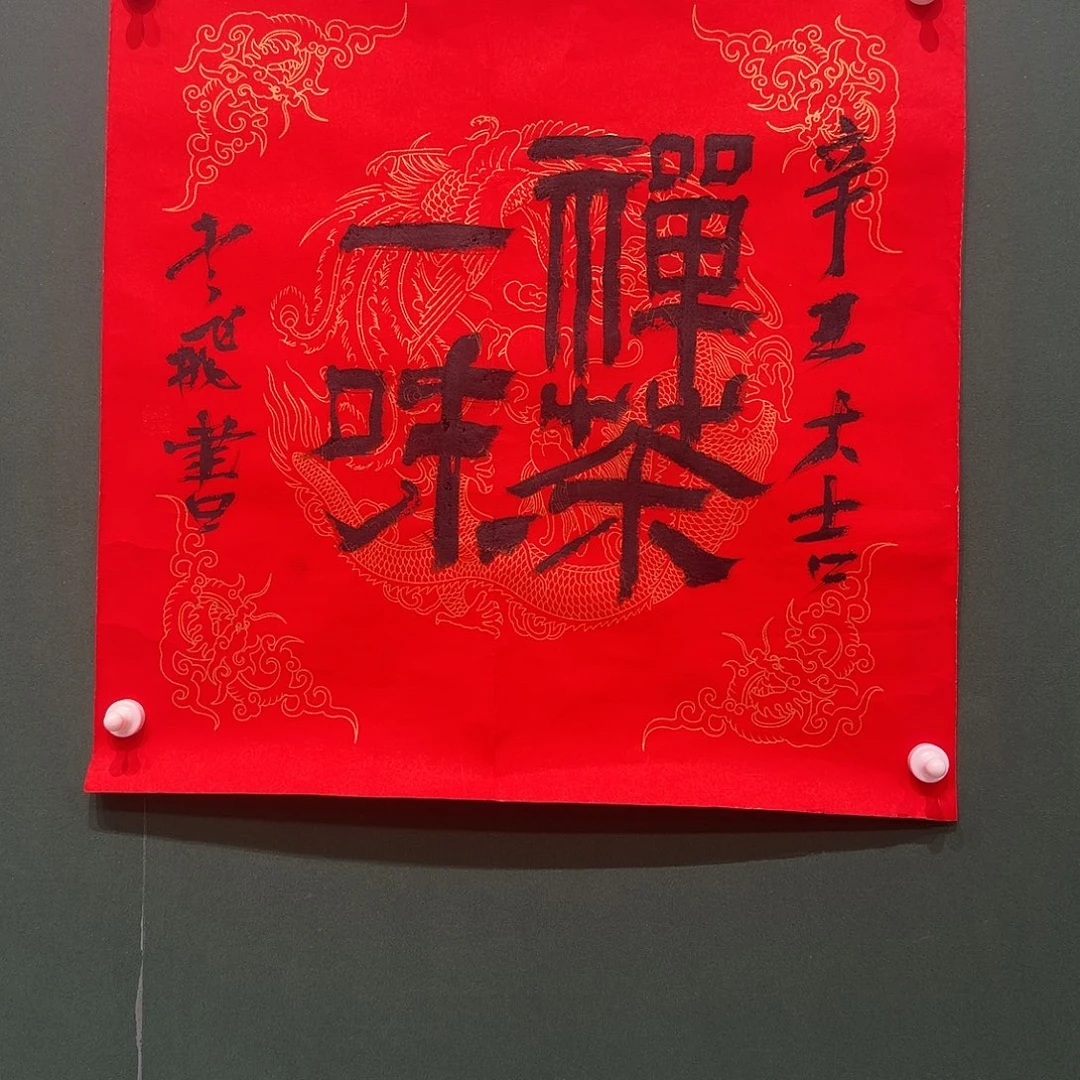 辛丑大吉
禪茶
一味
飛書